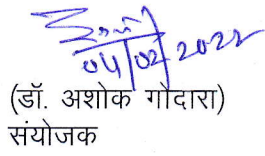 04/02/2022
(डॉ. अशोक गौदारा)
संयोजक